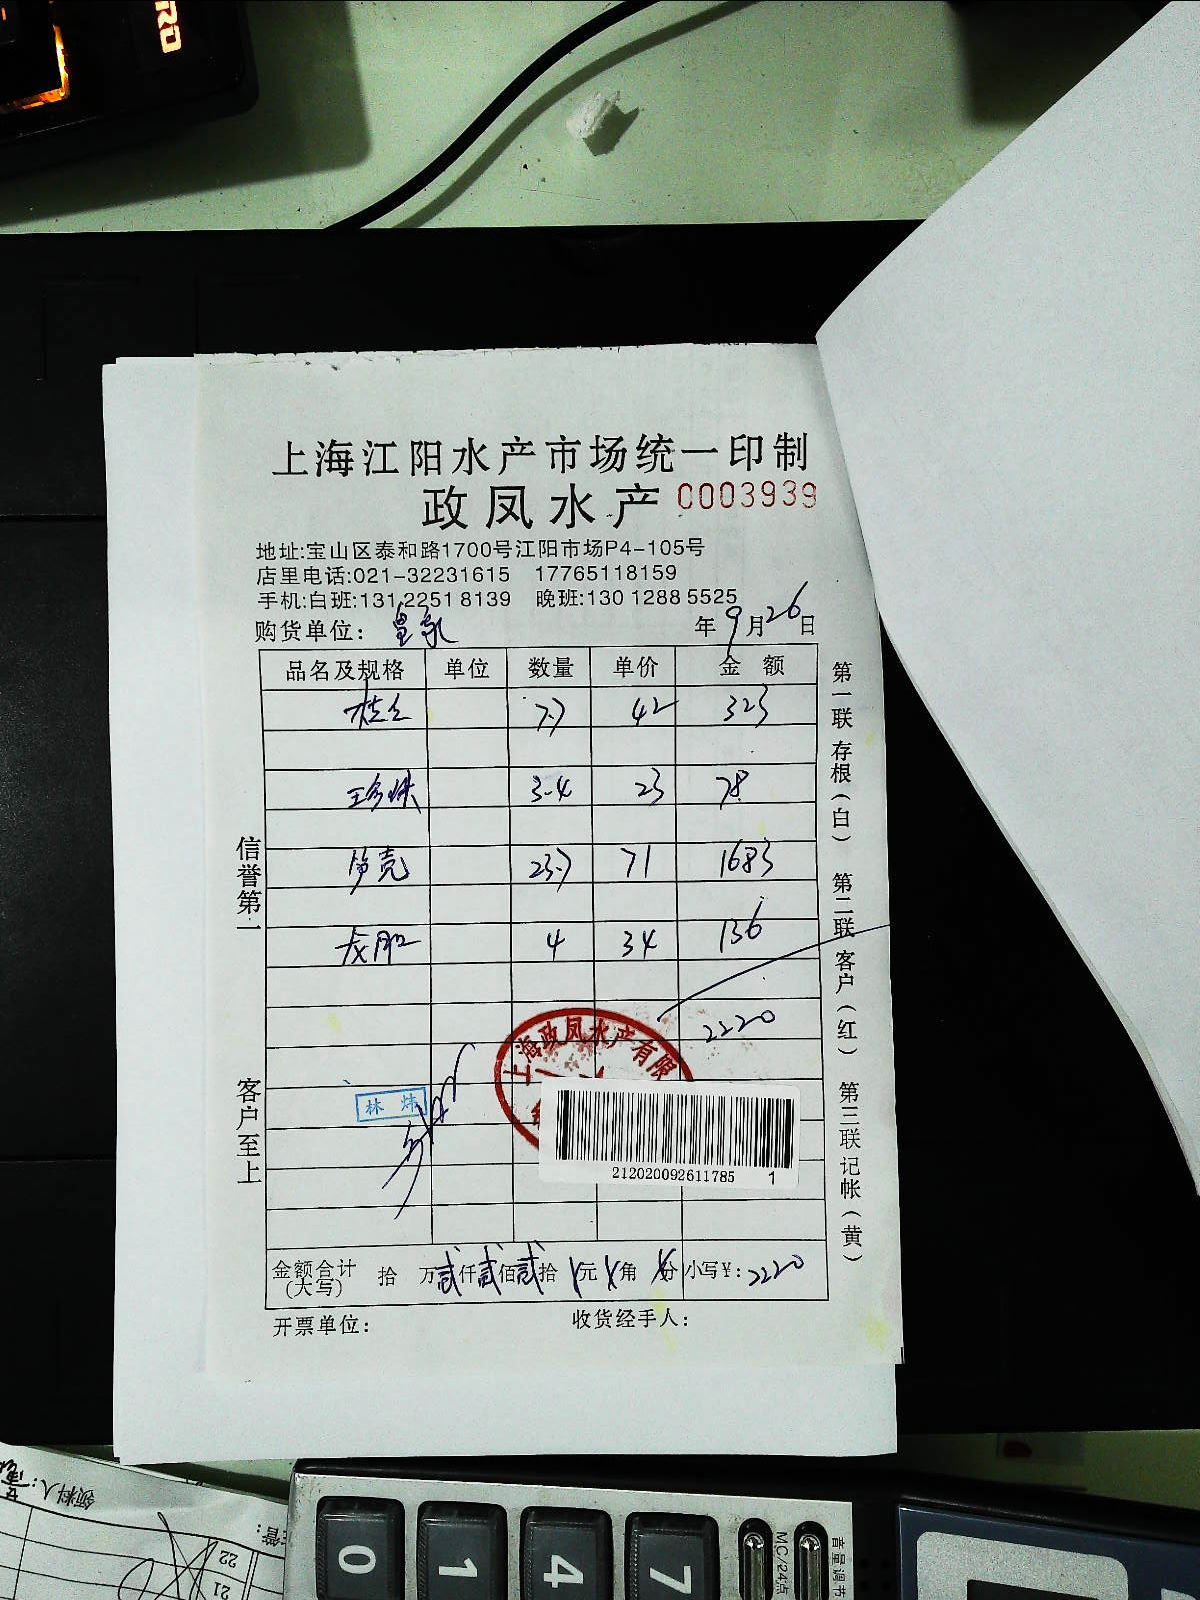 上海江阳水产市场统一印制
政凤水产 0003939
地址:宝山区泰和路1700号江阳市场P4-105号
店里电话:021-32231615 17765118159
手机:白班:131 2251 8139 晚班:130 1288 5525
购货单位: 年9月26日
品名及规格 单位 数量 单价 金额
7.7 42 323
珍珠 3.4 23 78
净壳 23.7 71 1683
4 34 136
2220
上海政凤水产有限
林炜
212020092611785 1
金额合计(大写) 拾 万贰仟贰佰贰拾 元 角 分 小写¥:2220
开票单位: 收货经手人:
信誉第一
客户至上
第一联存根(白) 第二联客户(红) 第三联记帐(黄)
领料人:
22
21
0 1 4 7
MC/24点
音量调节